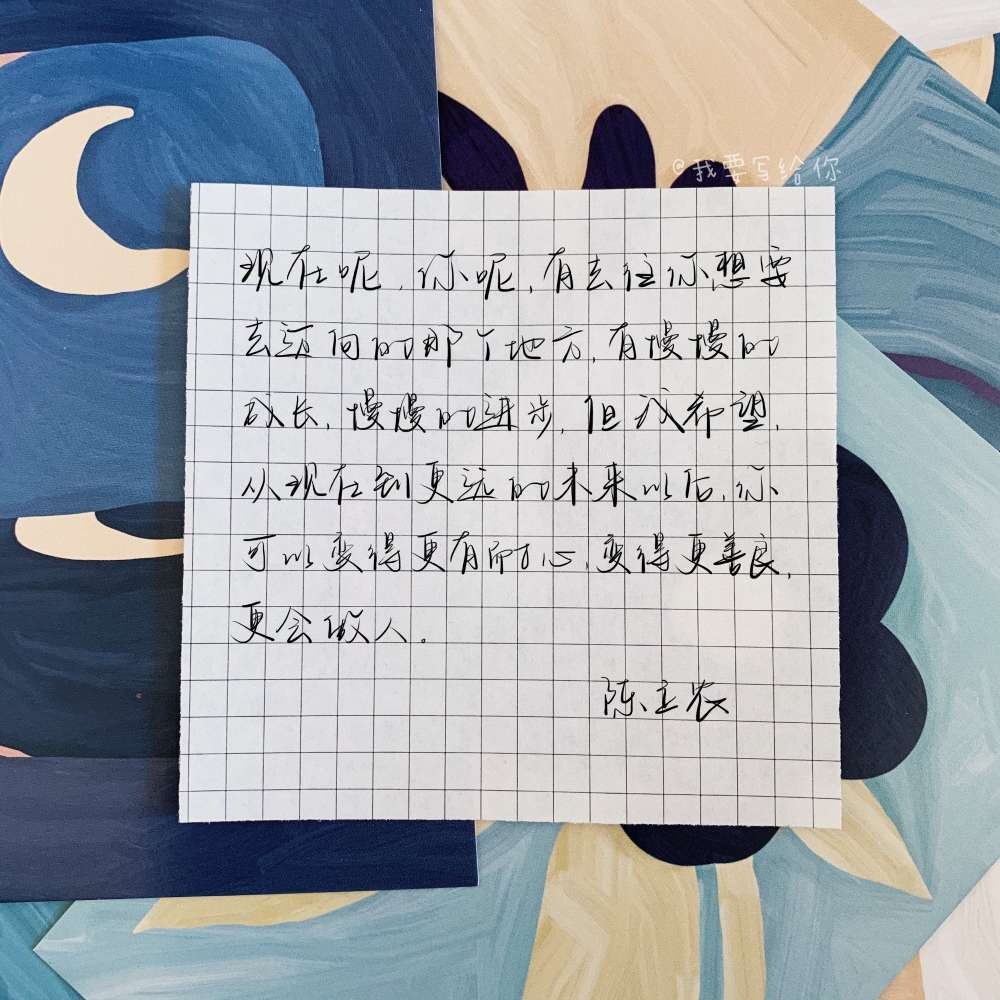 @我要写给你
现在呢,你呢,有去往你想要
去迈向的那个地方,有慢慢的
成长,慢慢的进步,但我希望,
从现在到更远的未来以后,你
可以变得更有耐心,变得更善良,
更会做人。
陈立农